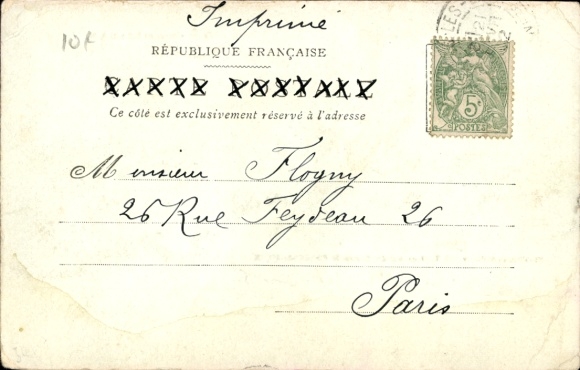 Imprimé
10f
RÉPUBLIQUE FRANÇAISE
CARTE POSTALE
Ce côté est exclusivement réservé à l'adresse
5c
POSTES
Monsieur Flogny
26 Rue Feydeau 26
Paris